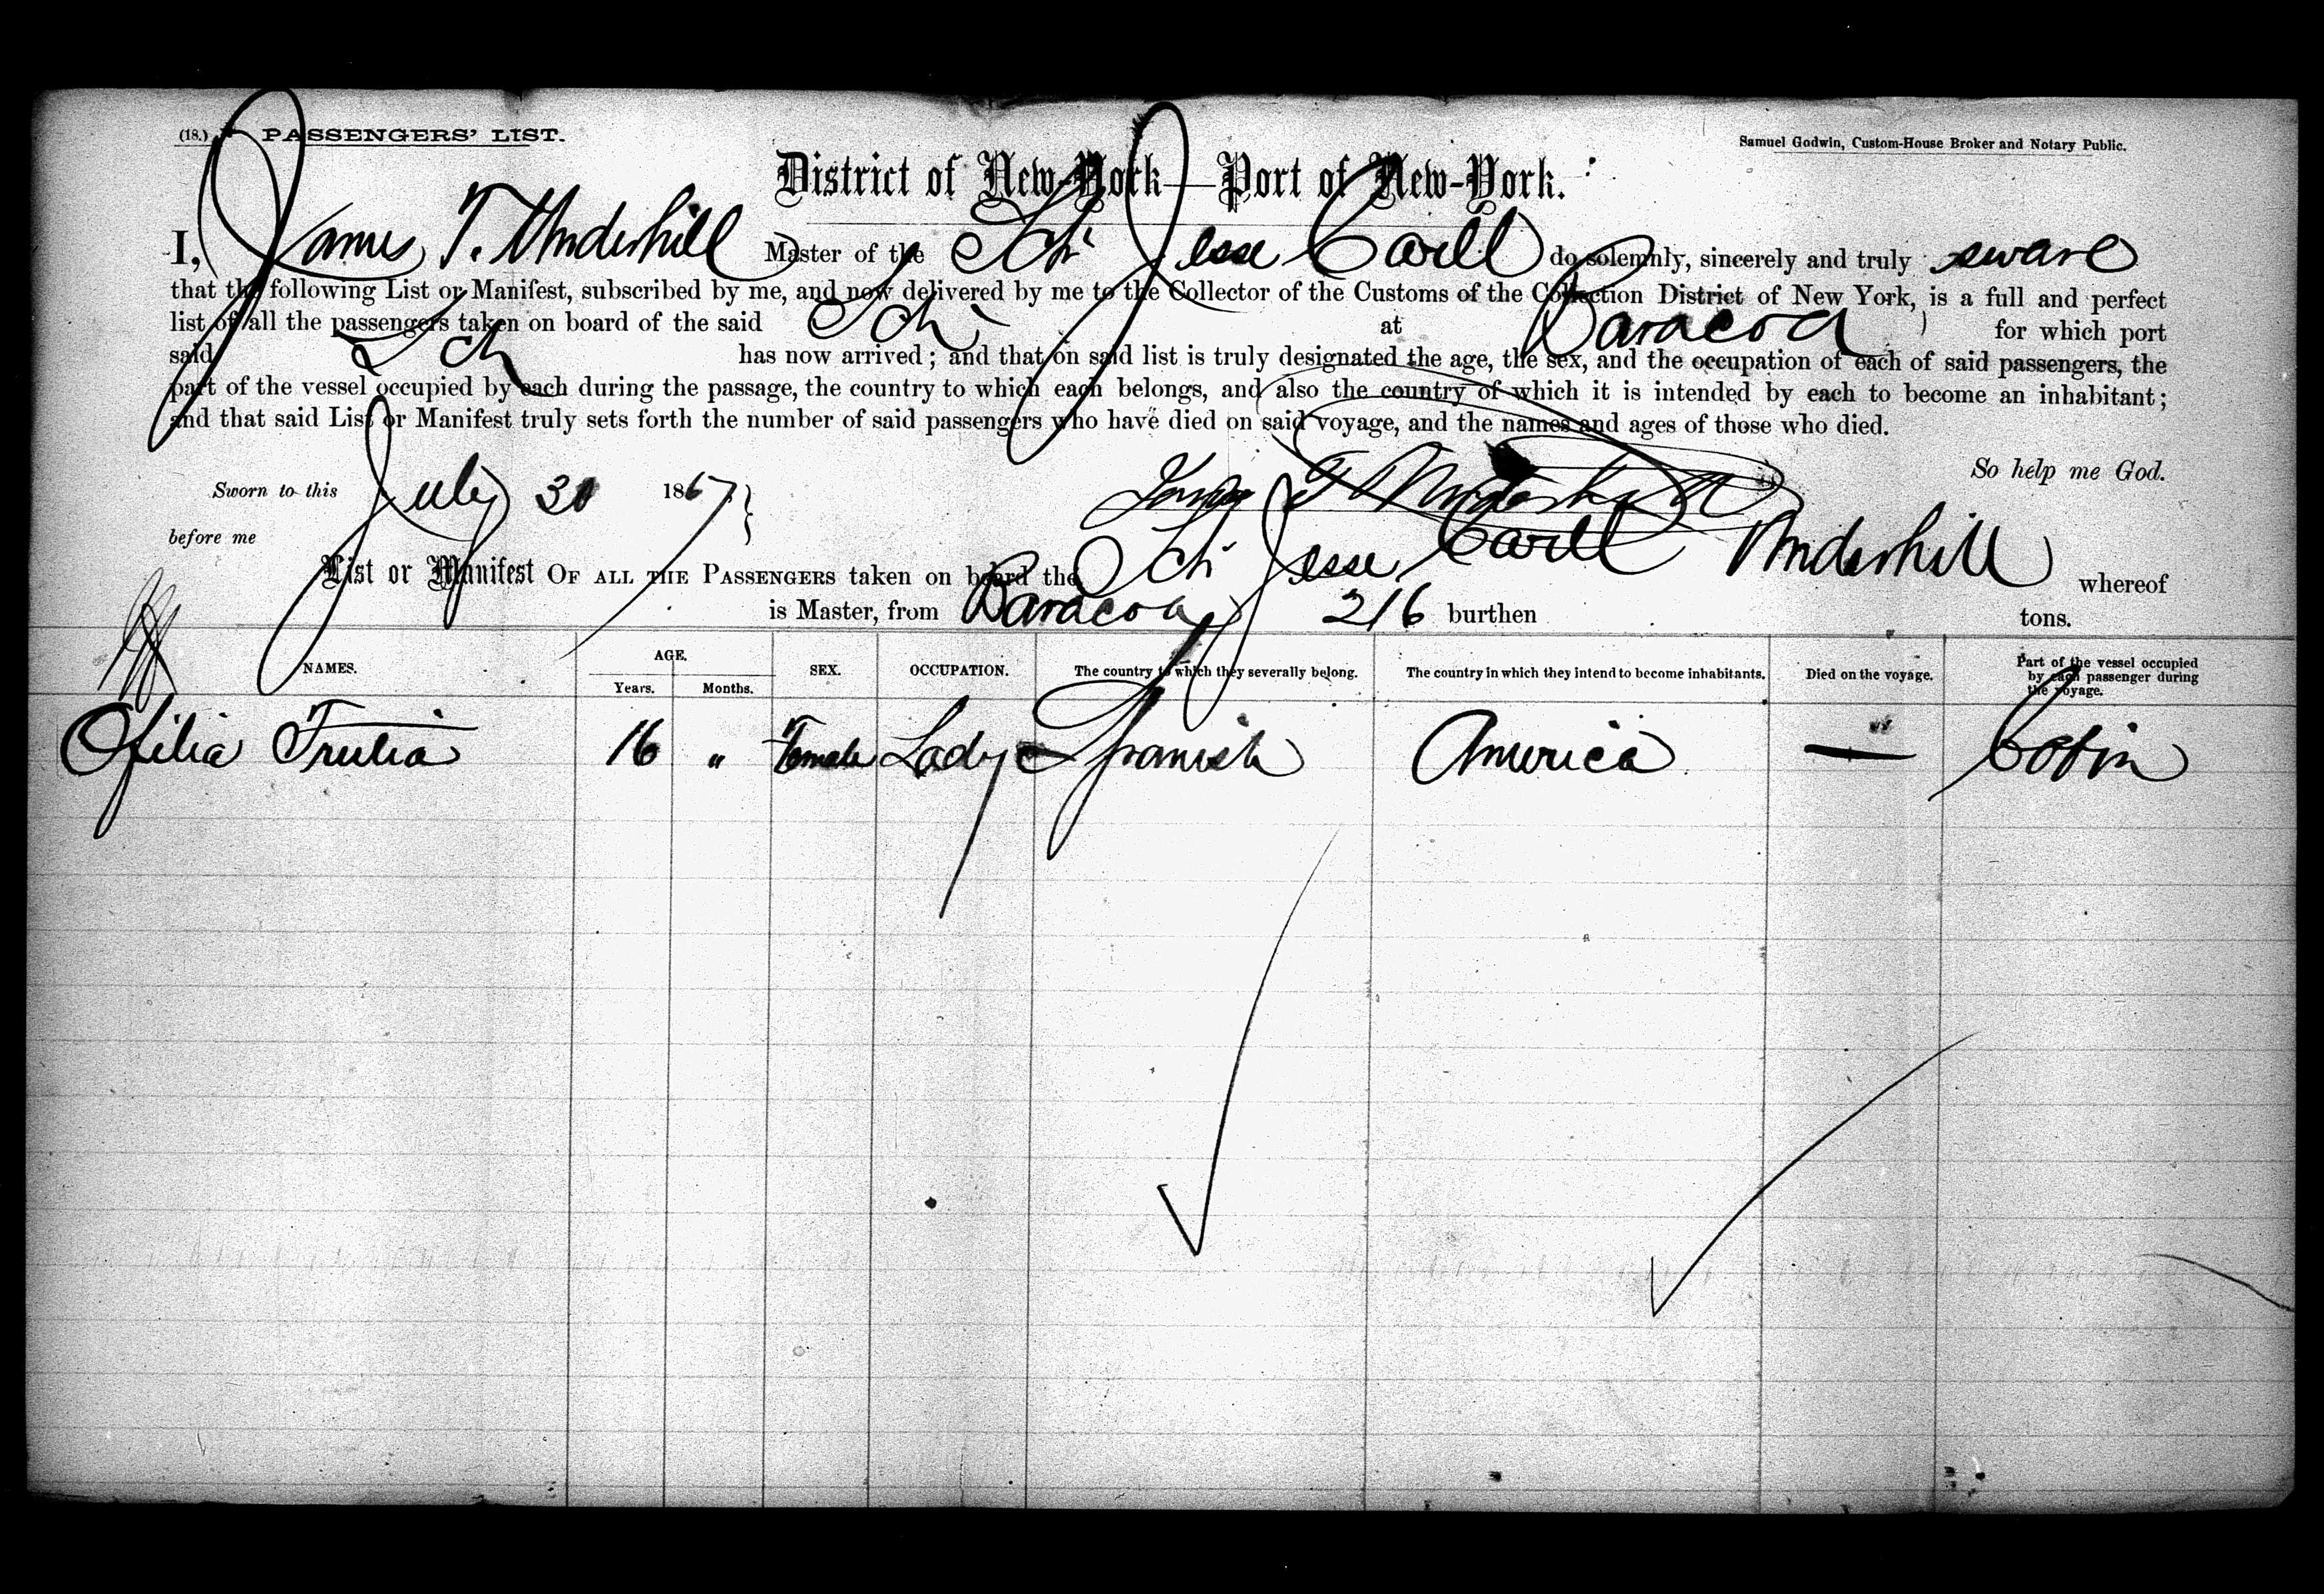 (18.) PASSENGERS' LIST.
Samuel Godwin, Custom-House Broker and Notary Public.
District of New-York—Port of New-York.
I, James T. Underhill Master of the Sch Jesse Carll do solemnly, sincerely and truly sware
that the following List or Manifest, subscribed by me, and now delivered by me to the Collector of the Customs of the Collection District of New York, is a full and perfect
list of all the passengers taken on board of the said Sch at Baracoa for which port
said Sch has now arrived; and that on said list is truly designated the age, the sex, and the occupation of each of said passengers, the
part of the vessel occupied by each during the passage, the country to which each belongs, and also the country of which it is intended by each to become an inhabitant;
and that said List or Manifest truly sets forth the number of said passengers who have died on said voyage, and the names and ages of those who died.
So help me God.
Sworn to this July 30 1867
James T Underhill
before me
List or Manifest OF ALL THE PASSENGERS taken on board the Sch Jesse Carll Underhill whereof
is Master, from Baracoa 216 burthen tons.
NAMES. AGE. SEX. OCCUPATION. The country to which they severally belong. The country in which they intend to become inhabitants. Died on the voyage. Part of the vessel occupied by each passenger during the voyage.
Years. Months.
Ofilia 16 " Female Lady Spanish America — Cabin